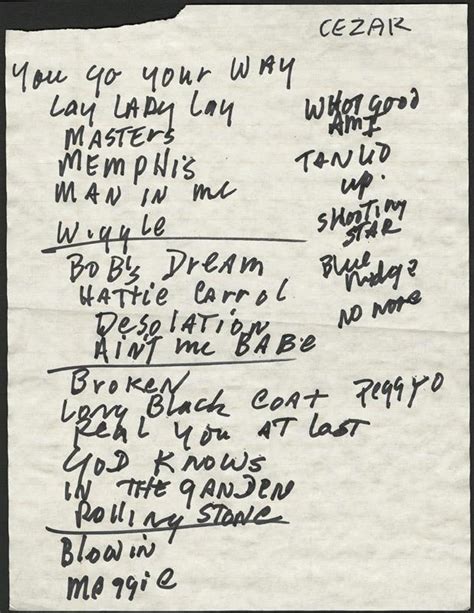 CEZAR
You go your WAY
Lay LADY Lay
MASTERS
MEMPHis
MAN IN me
Wiggle
BOB's DREAM
HATTie CARROL
DesolATION
AIN'T me BABe
Broken
Long BlAck COAT Peggy O
Real You AT LAST
GOD KNOWS
IN THE GARDEN
ROlling STONe
Blowin
Meggie
WHAT good
AM I
TANGLED
up.
SHOOTING
STAR
Blue
Ridge
NO MORE